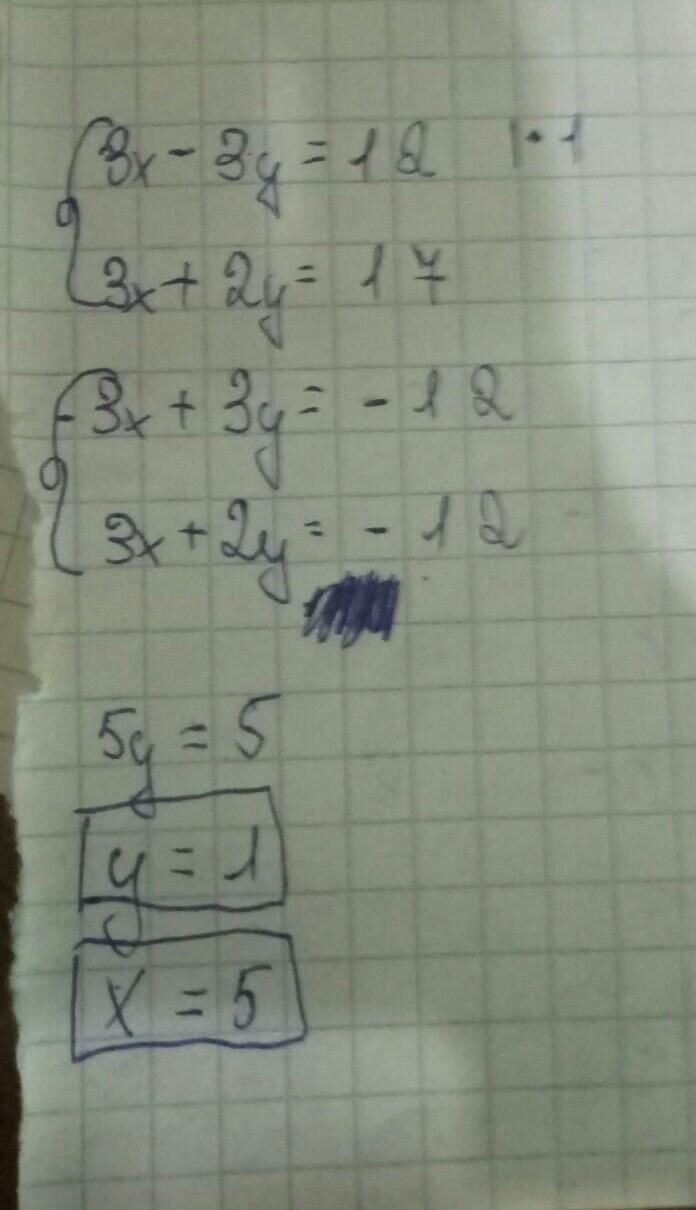 3x - 3y = 12 | · 1
3x + 2y = 17
-3x + 3y = - 12
3x + 2y = - 12
5y = 5
y = 1
x = 5